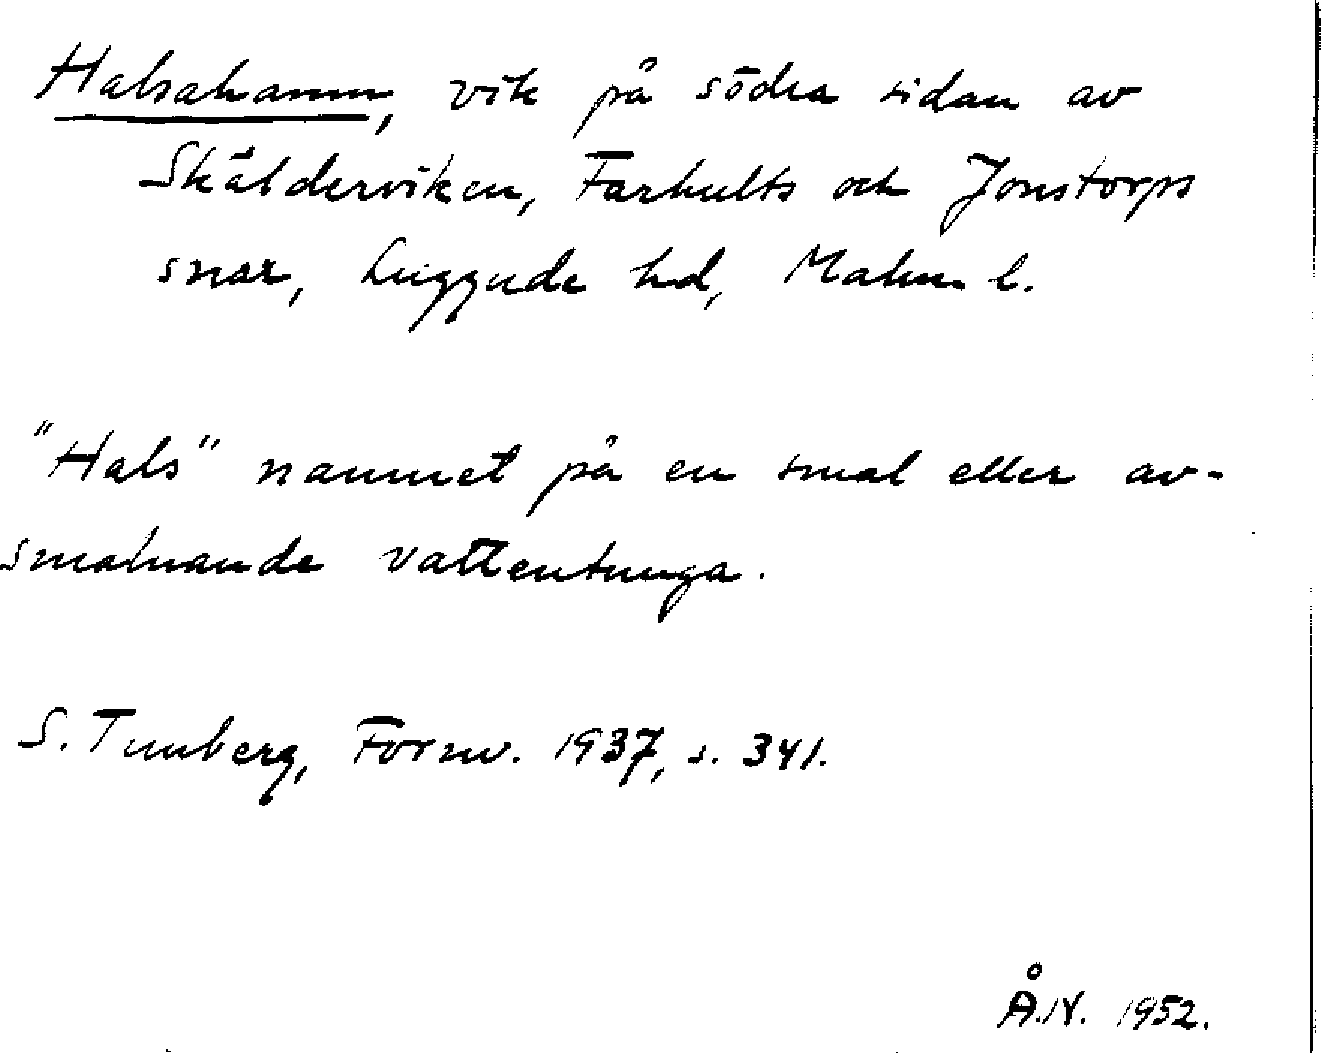 Halsahamn, vik på södra sidan av
Skälderviken, Farhults och Jonstorps
snar, Luggude hd, Malm. l.
"Hals" namnet på en smal eller av-
smalnande vattentunga.
S. Tunberg, Fornv. 1937, s. 341.
Å.N. 1952.